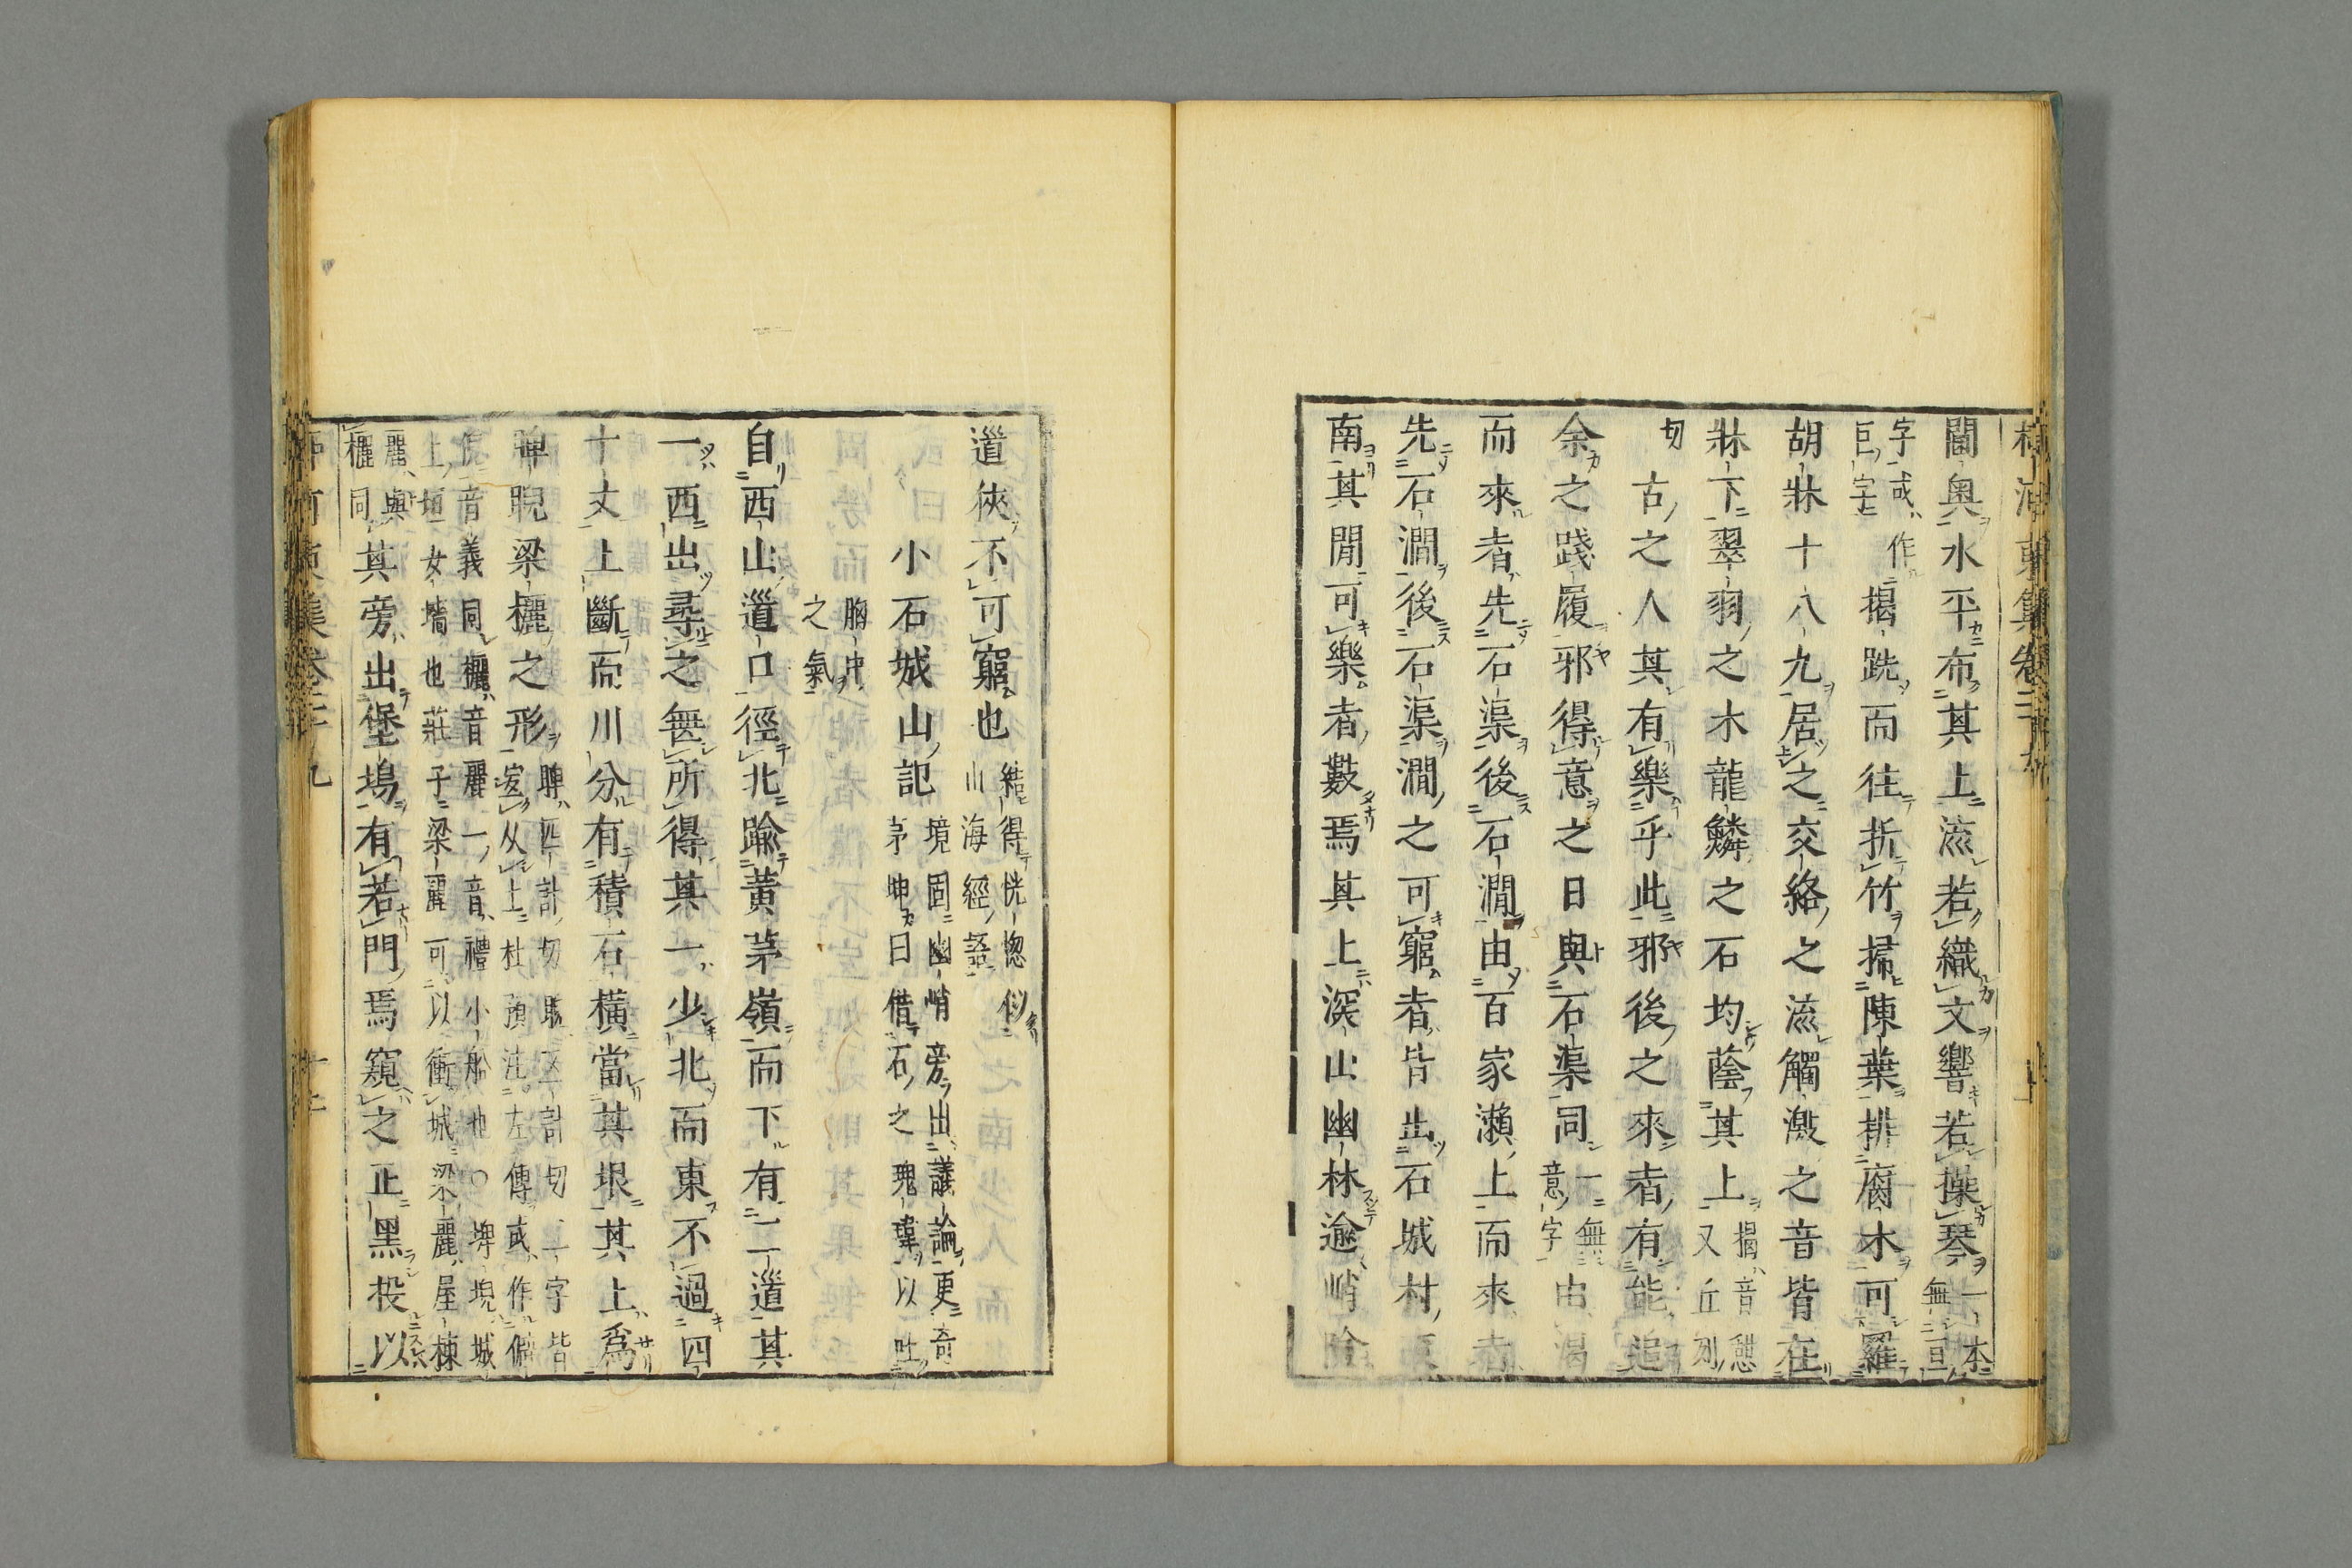 閫奧水平布其上流若織文響若操琴一本無亘
字或作揭跣而往折竹掃陳葉排腐木可羅
胡牀十八九居之交絡之流觸激之音皆在
牀下翠羽之木龍鱗之石均蔭其上揭音憩又丘刻
切古之人其有樂乎此邪後之來者有能追
余之踐履邪得意之日與石渠同一無意字由渴
而來者先石渠後石澗由百家瀨上而來者
先石澗後石渠澗之可窮者皆出石城村
南其閒可樂者數焉其上深山幽林逾峭險
道狹不可窮也結得恍惚似山海經語
小石城山記境固幽峭旁出議論更奇茅坤曰借石之瑰瑋以吐
胸中之氣
自西山道口徑北踰黃茅嶺而下有二道其
一西出尋之無所得其一少北而東不過四
十丈上斷而川分有積石橫當其垠其上爲
睥睨梁欐之形睥匹計切睨五計切二字皆定从上杜預注左傳或作僻
倪音義同欐音麗一音禮小船也〇埤堄城上垣女墻也莊子梁麗可以衝城梁麗屋棟
麗與欐同其旁出堡塢有若門焉窺之正黑投以